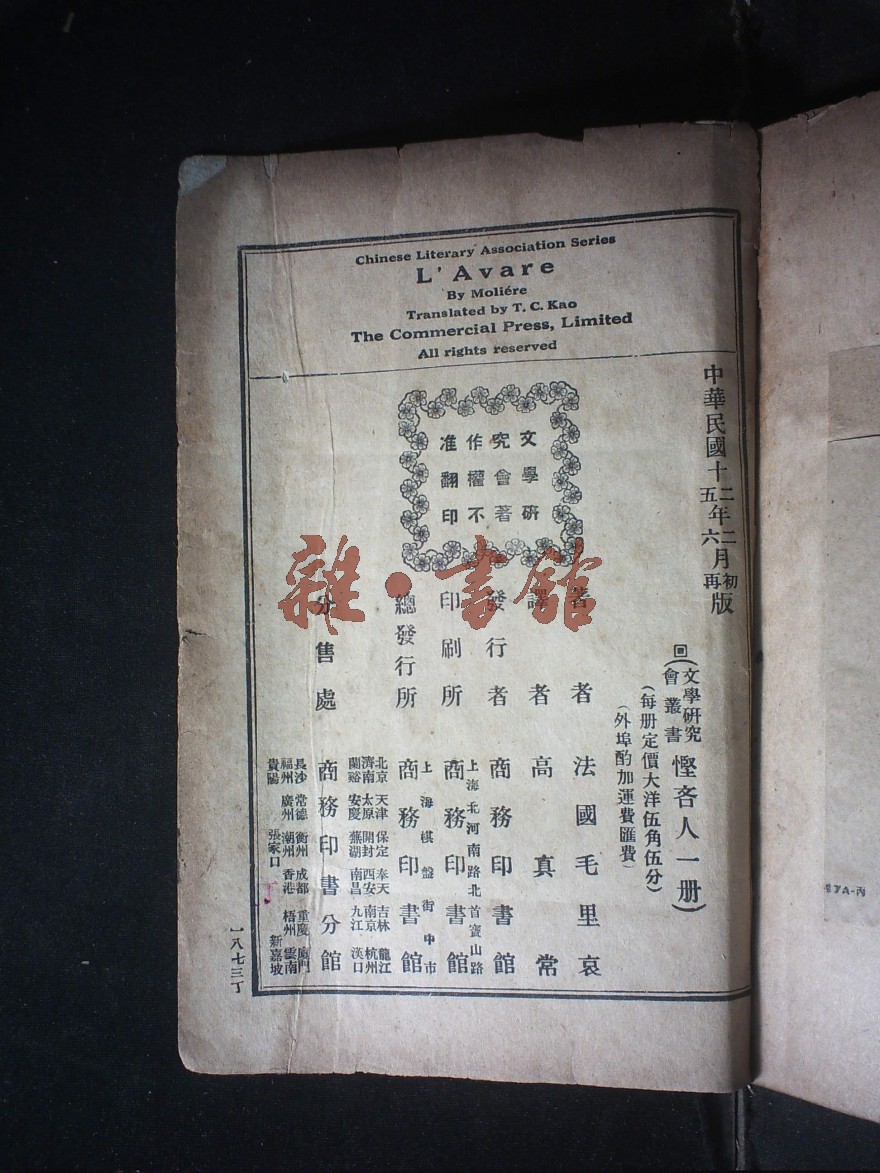 Chinese Literary Association Series
L'Avare
By Moliére
Translated by T. C. Kao
The Commercial Press, Limited
All rights reserved
中華民國十二年二月初版
五六再
文學研
究會著
作權不
准翻印
回(文學研究會叢書 慳吝人一册)
(每册定價大洋伍角伍分)
(外埠酌加運費匯費)
著者 法國毛里哀
譯者 高真常
發行者 商務印書館
上海北河南路北首寶山路
印刷所 商務印書館
上海棋盤街中市
總發行所 商務印書館
分售處 商務印書分館
北京 天津 保定 奉天 吉林 龍江
濟南 太原 開封 西安 南京 杭州
蘭谿 安慶 蕪湖 南昌 九江 漢口
長沙 常德 衡州 成都 重慶 廈門
福州 廣州 潮州 香港 梧州 雲南
貴陽 張家口 新嘉坡
一八七三丁
雜·書館
7A-丙